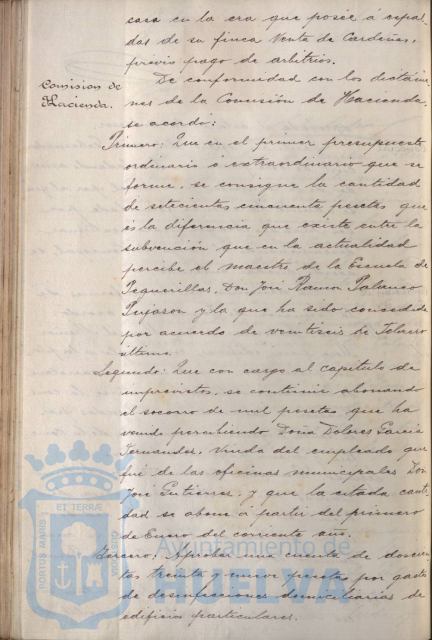 casa en la era que posée á espal-
das de su finca Venta de Cardeñas,
previo pago de arbitrios.
Comision de
Hacienda.
De conformidad con los dictáme-
nes de la Comisión de Hacienda,
se acordó:
Primero: Que en el primer presupuesto
ordinario ó extraordinario que se
forme, se consigne la cantidad
de setecientas cincuenta pesetas que
es la diferencia que existe entre la
subvención que en la actualidad
percibe el maestro de la Escuela de
Peguerillas, Don José Ramon Palanco
y la que ha sido concedida
por acuerdo de veintiseis de Febrero
último.
Segundo: Que con cargo al capítulo de
imprevistos, se continúe abonando
el socorro de mil pesetas que ha
venido percibiendo Doña Dolores García
Fernandez, Viuda del empleado que
fué de las oficinas municipales Don
José Gutierrez, y que la citada canti-
dad se abone á partir del primero
de Enero del corriente año.
Tercero: Aprobar una cuenta de doscien-
tas treinta y nueve pesetas por gastos
de desinfecciones domiciliarias de
edificios particulares.
PORTUS MARIS
ET TERRÆ
Ayuntamiento de
HUELVA